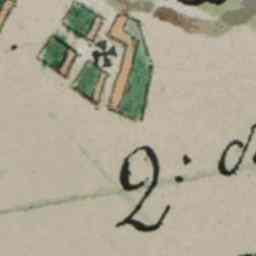 2: d